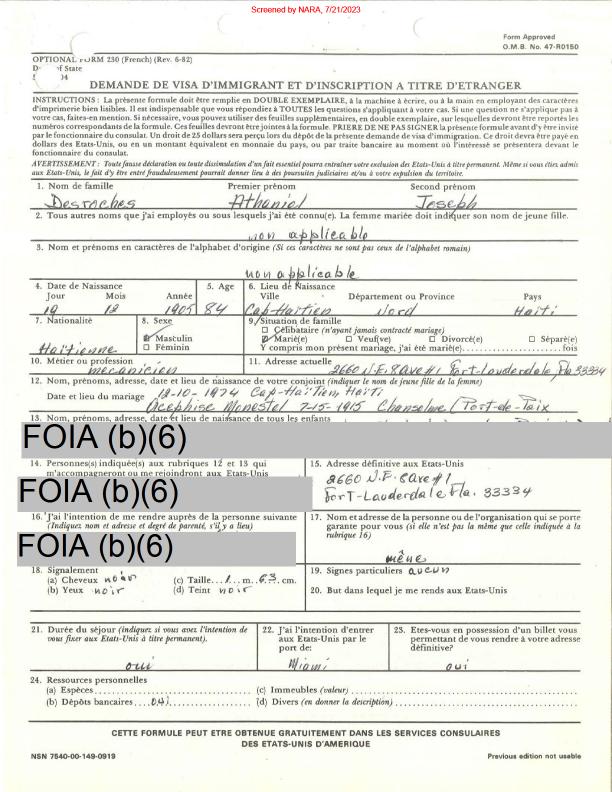 Screened by NARA, 7/21/2023
Form Approved
O.M.B. No. 47-R0150
OPTIONAL FORM 230 (French) (Rev. 6-82)
of State
DEMANDE DE VISA D'IMMIGRANT ET D'INSCRIPTION A TITRE D'ETRANGER
INSTRUCTIONS : La présente formule doit être remplie en DOUBLE EXEMPLAIRE, à la machine à écrire, ou à la main en employant des caractères
d'imprimerie bien lisibles. Il est indispensable que vous répondiez à TOUTES les questions s'appliquant à votre cas. Si une question ne s'applique pas à
votre cas, faites-en mention. Si nécessaire, vous pouvez utiliser des feuilles supplémentaires, en double exemplaire, sur lesquelles devront être reportés les
numéros correspondants de la formule. Ces feuilles devront être jointes à la formule. PRIERE DE NE PAS SIGNER la présente formule avant d'y être invité
par le fonctionnaire du consulat. Un droit de 25 dollars sera perçu lors du dépôt de la présente demande de visa d'immigration. Ce droit devra être payé en
dollars des Etats-Unis, ou en un montant équivalent en monnaie du pays, ou par traite bancaire au moment où l'intéressé se présentera devant le
fonctionnaire du consulat.
AVERTISSEMENT : Toute fausse déclaration ou toute dissimulation d'un fait essentiel pourra entraîner votre exclusion des Etats-Unis à titre permanent. Même si vous êtes admis
aux Etats-Unis, le fait d'y être entré frauduleusement pourrait donner lieu à des poursuites judiciaires et/ou à votre expulsion du territoire.
1. Nom de famille Premier prénom Second prénom
Desroches Athaniel Joseph
2. Tous autres noms que j'ai employés ou sous lesquels j'ai été connu(e). La femme mariée doit indiquer son nom de jeune fille.
non applicable
3. Nom et prénoms en caractères de l'alphabet d'origine (Si ces caractères ne sont pas ceux de l'alphabet romain)
non applicable
4. Date de Naissance 5. Age 6. Lieu de Naissance
Jour Mois Année Ville Département ou Province Pays
19 12 1905 84 Cap-Haïtien Nord Haïti
7. Nationalité 8. Sexe 9. Situation de famille
Célibataire (n'ayant jamais contracté mariage)
Masculin Marié(e) Veuf(ve) Divorcé(e) Séparé(e)
Haïtienne Féminin Y compris mon présent mariage, j'ai été marié(e) fois
10. Métier ou profession 11. Adresse actuelle
mécanicien 2660 N.E. 8 Ave #1 Fort-Lauderdale, Fla 33334
12. Nom, prénoms, adresse, date et lieu de naissance de votre conjoint (indiquer le nom de jeune fille de la femme)
Date et lieu du mariage 12-10-1974 Cap-Haïtien, Haïti
Acephise Monestel 7-15-1915 Chansolme (Port-de-Paix
13. Nom, prénoms, adresse, date et lieu de naissance de tous les enfants
FOIA (b)(6)
14. Personnes(s) indiquée(s) aux rubriques 12 et 13 qui
m'accompagneront ou me rejoindront aux Etats-Unis
FOIA (b)(6)
15. Adresse définitive aux Etats-Unis
2660 N.E. 8 Ave #1
Fort-Lauderdale Fla. 33334
16. J'ai l'intention de me rendre auprès de la personne suivante
(Indiquez nom et adresse et degré de parenté, s'il y a lieu)
FOIA (b)(6)
17. Nom et adresse de la personne ou de l'organisation qui se porte
garante pour vous (si elle n'est pas la même que celle indiquée à la
rubrique 16)
même
18. Signalement
(a) Cheveux noir (c) Taille...1...m..63..cm.
(b) Yeux noir (d) Teint noir
19. Signes particuliers aucun
20. But dans lequel je me rends aux Etats-Unis
21. Durée du séjour (indiquez si vous avez l'intention de
vous fixer aux Etats-Unis à titre permanent).
oui
22. J'ai l'intention d'entrer
aux Etats-Unis par le
port de:
Miami
23. Etes-vous en possession d'un billet vous
permettant de vous rendre à votre adresse
définitive?
oui
24. Ressources personnelles
(a) Espèces (c) Immeubles (valeur)
(b) Dépôts bancaires (d) Divers (en donner la description)
CETTE FORMULE PEUT ETRE OBTENUE GRATUITEMENT DANS LES SERVICES CONSULAIRES
DES ETATS-UNIS D'AMERIQUE
NSN 7540-00-149-0919 Previous edition not usable